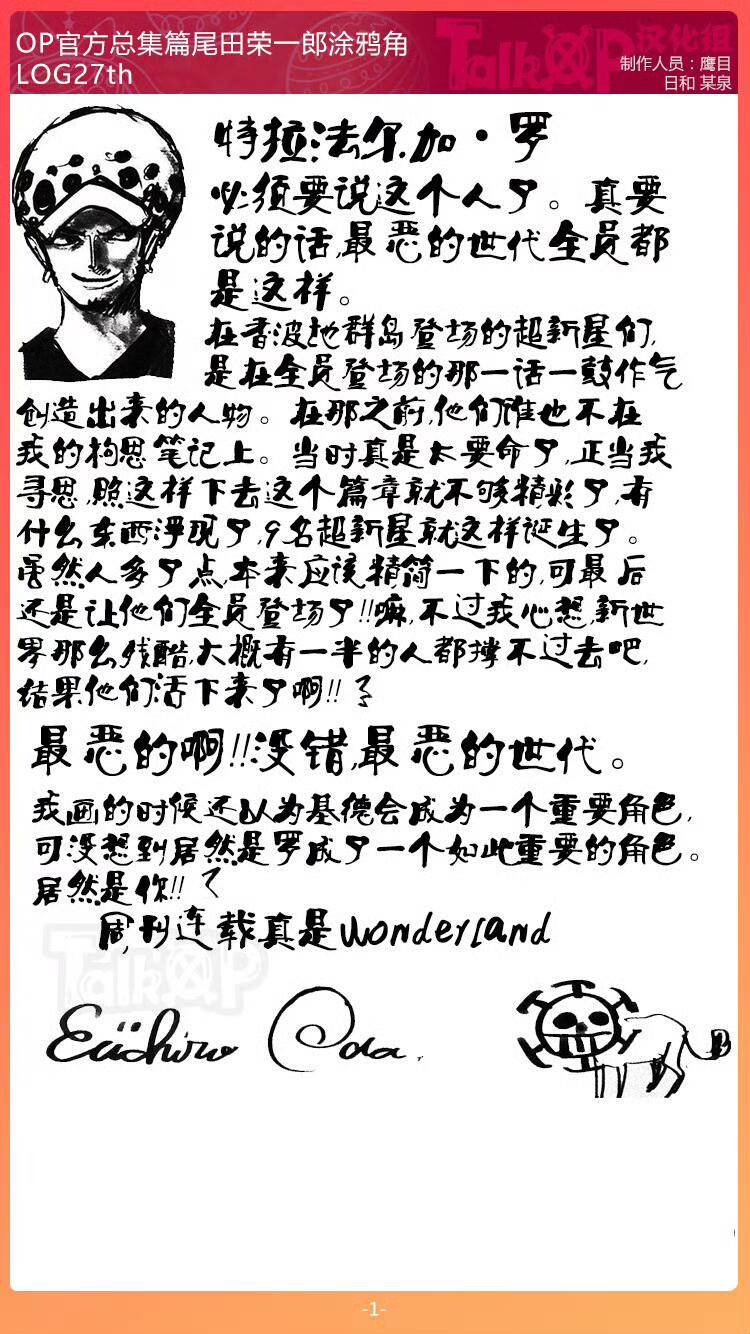 OP官方总集篇尾田荣一郎涂鸦角
LOG27th
TalkOP汉化组
制作人员：鹰目
日和 某泉
特拉法尔加·罗
必须要说这个人了。真要
说的话,最恶的世代全员都
是这样。
在香波地群岛登场的超新星们,
是在全员登场的那一话一鼓作气
创造出来的人物。在那之前,他们谁也不在
我的构思笔记上。当时真是太要命了,正当我
寻思,照这样下去这个篇章就不够精彩了,有
什么东西浮现了,9名超新星就这样诞生了。
虽然人多了点本来应该精简一下的,可最后
还是让他们全员登场了!!嘛,不过我心想,新世
界那么残酷,大概有一半的人都撑不过去吧,
结果他们活下来了啊!!
最恶的啊!!没错,最恶的世代。
我画的时候还以为基德会成为一个重要角色,
可没想到居然是罗成了一个如此重要的角色。
居然是你!!
周刊连载真是wonderland
TalkOP
Eiichiro Oda.
-1-